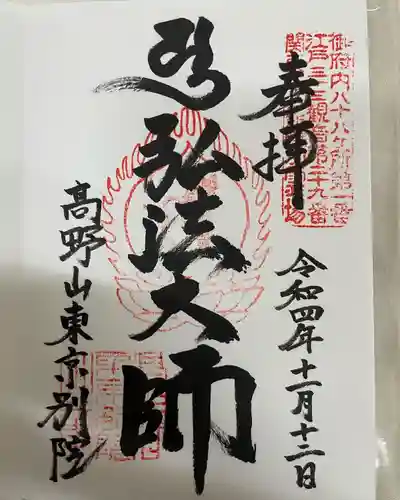 奉拝
御府内八十八ヶ所第一番
江戸三十三観音第二十九番
弘法大師
高野山東京別院
令和四年十一月十二日